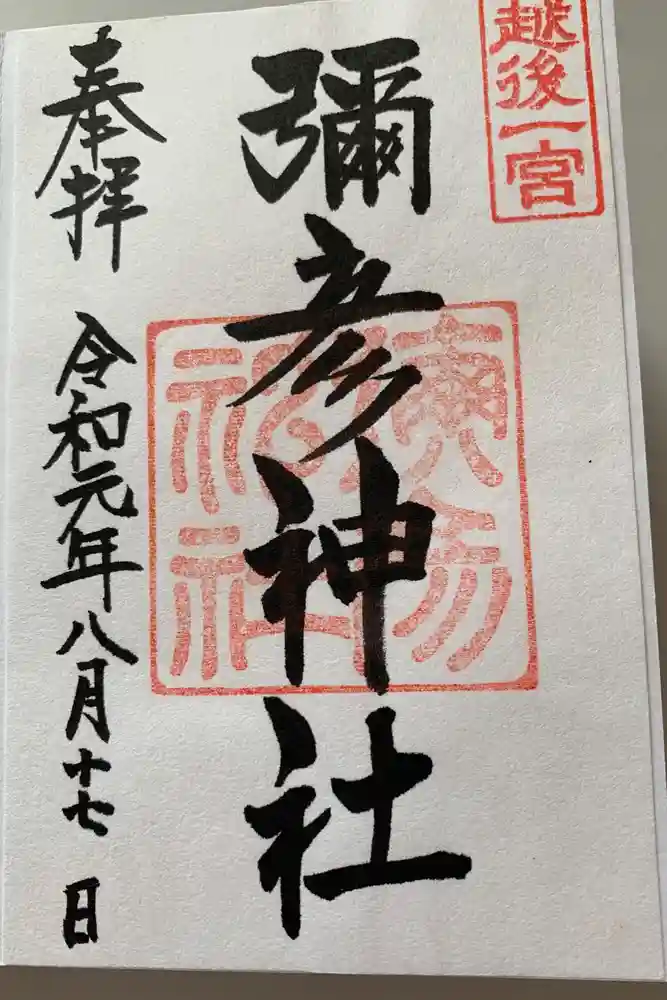 越後一宮
彌彦神社
奉拝 令和元年八月十七日